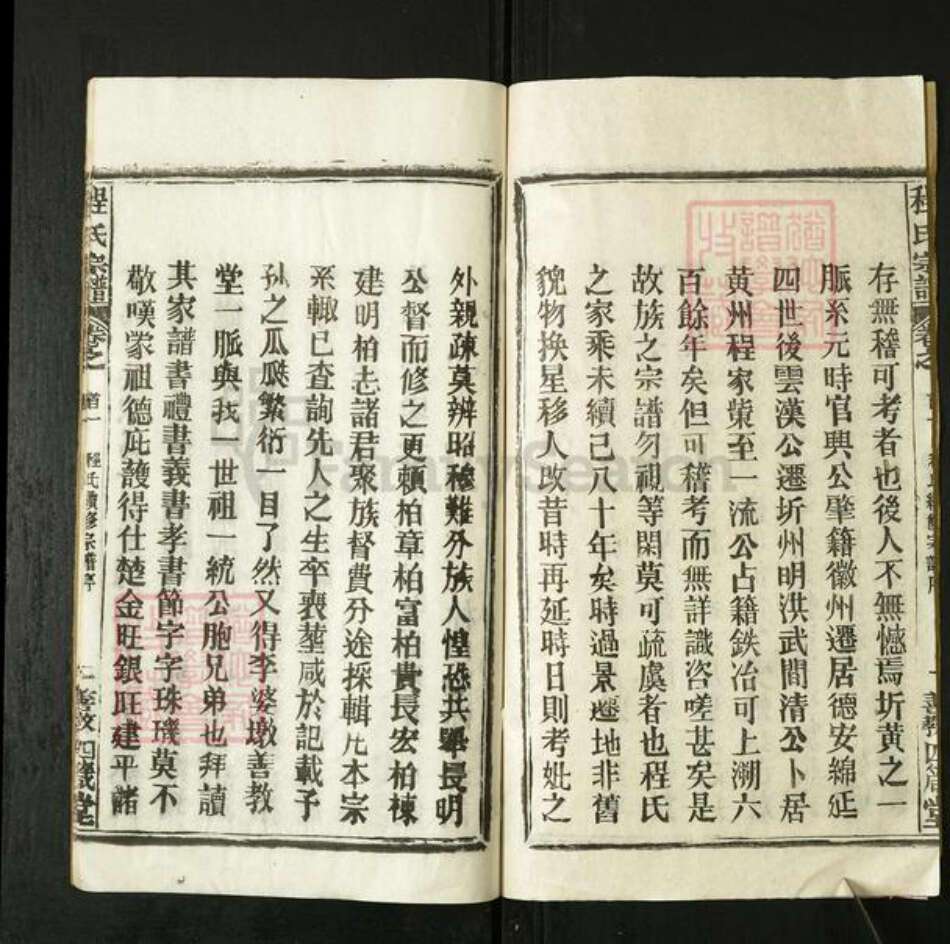 存無稽可考者也後人不無憾焉圻黄之一
脈系元時官興公肇籍徽州遷居德安綿延
四世後雲漢公遷圻州明洪武間清公卜居
黄州程家蓂至一流公占籍鉄冶可上溯六
百餘年矣但可稽考而無詳識咨嗟甚矣是
故族之宗譜勿視等閑莫可疏虞者也程氏
之家乘未續已八十年矣時過景遷地非舊
貌物换星移人改昔時再延時日則考妣之
外親疎莫辨昭穆難分族人惶恐共舉長明
公督而修之更賴柏章柏富柏貴長宏柏棟
建明柏志諸君聚族督費分途採輯凡本宗
系輙已查詢先人之生卒喪塟咸於記載子
孫之瓜瓞繁衍一目了然又得李婆墩善教
堂一脈與我一世祖一統公胞兄弟也拜讀
其家譜書禮書義書孝書節字字珠璣莫不
敬嘆蒙祖德庇護得仕楚金旺銀旺建平諸
程氏宗譜 卷之首一 程氏續修宗譜序 二 善教 四箴堂
FamilySearch